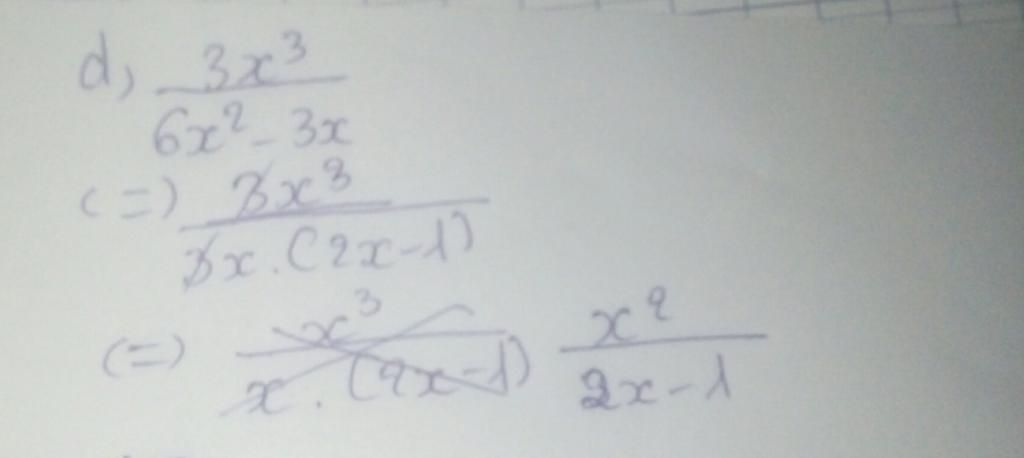 d, 3x³ / 6x² - 3x
(=) 3x³ / 3x . (2x-1)
(=) x³ / x . (2x-1) x² / 2x-1